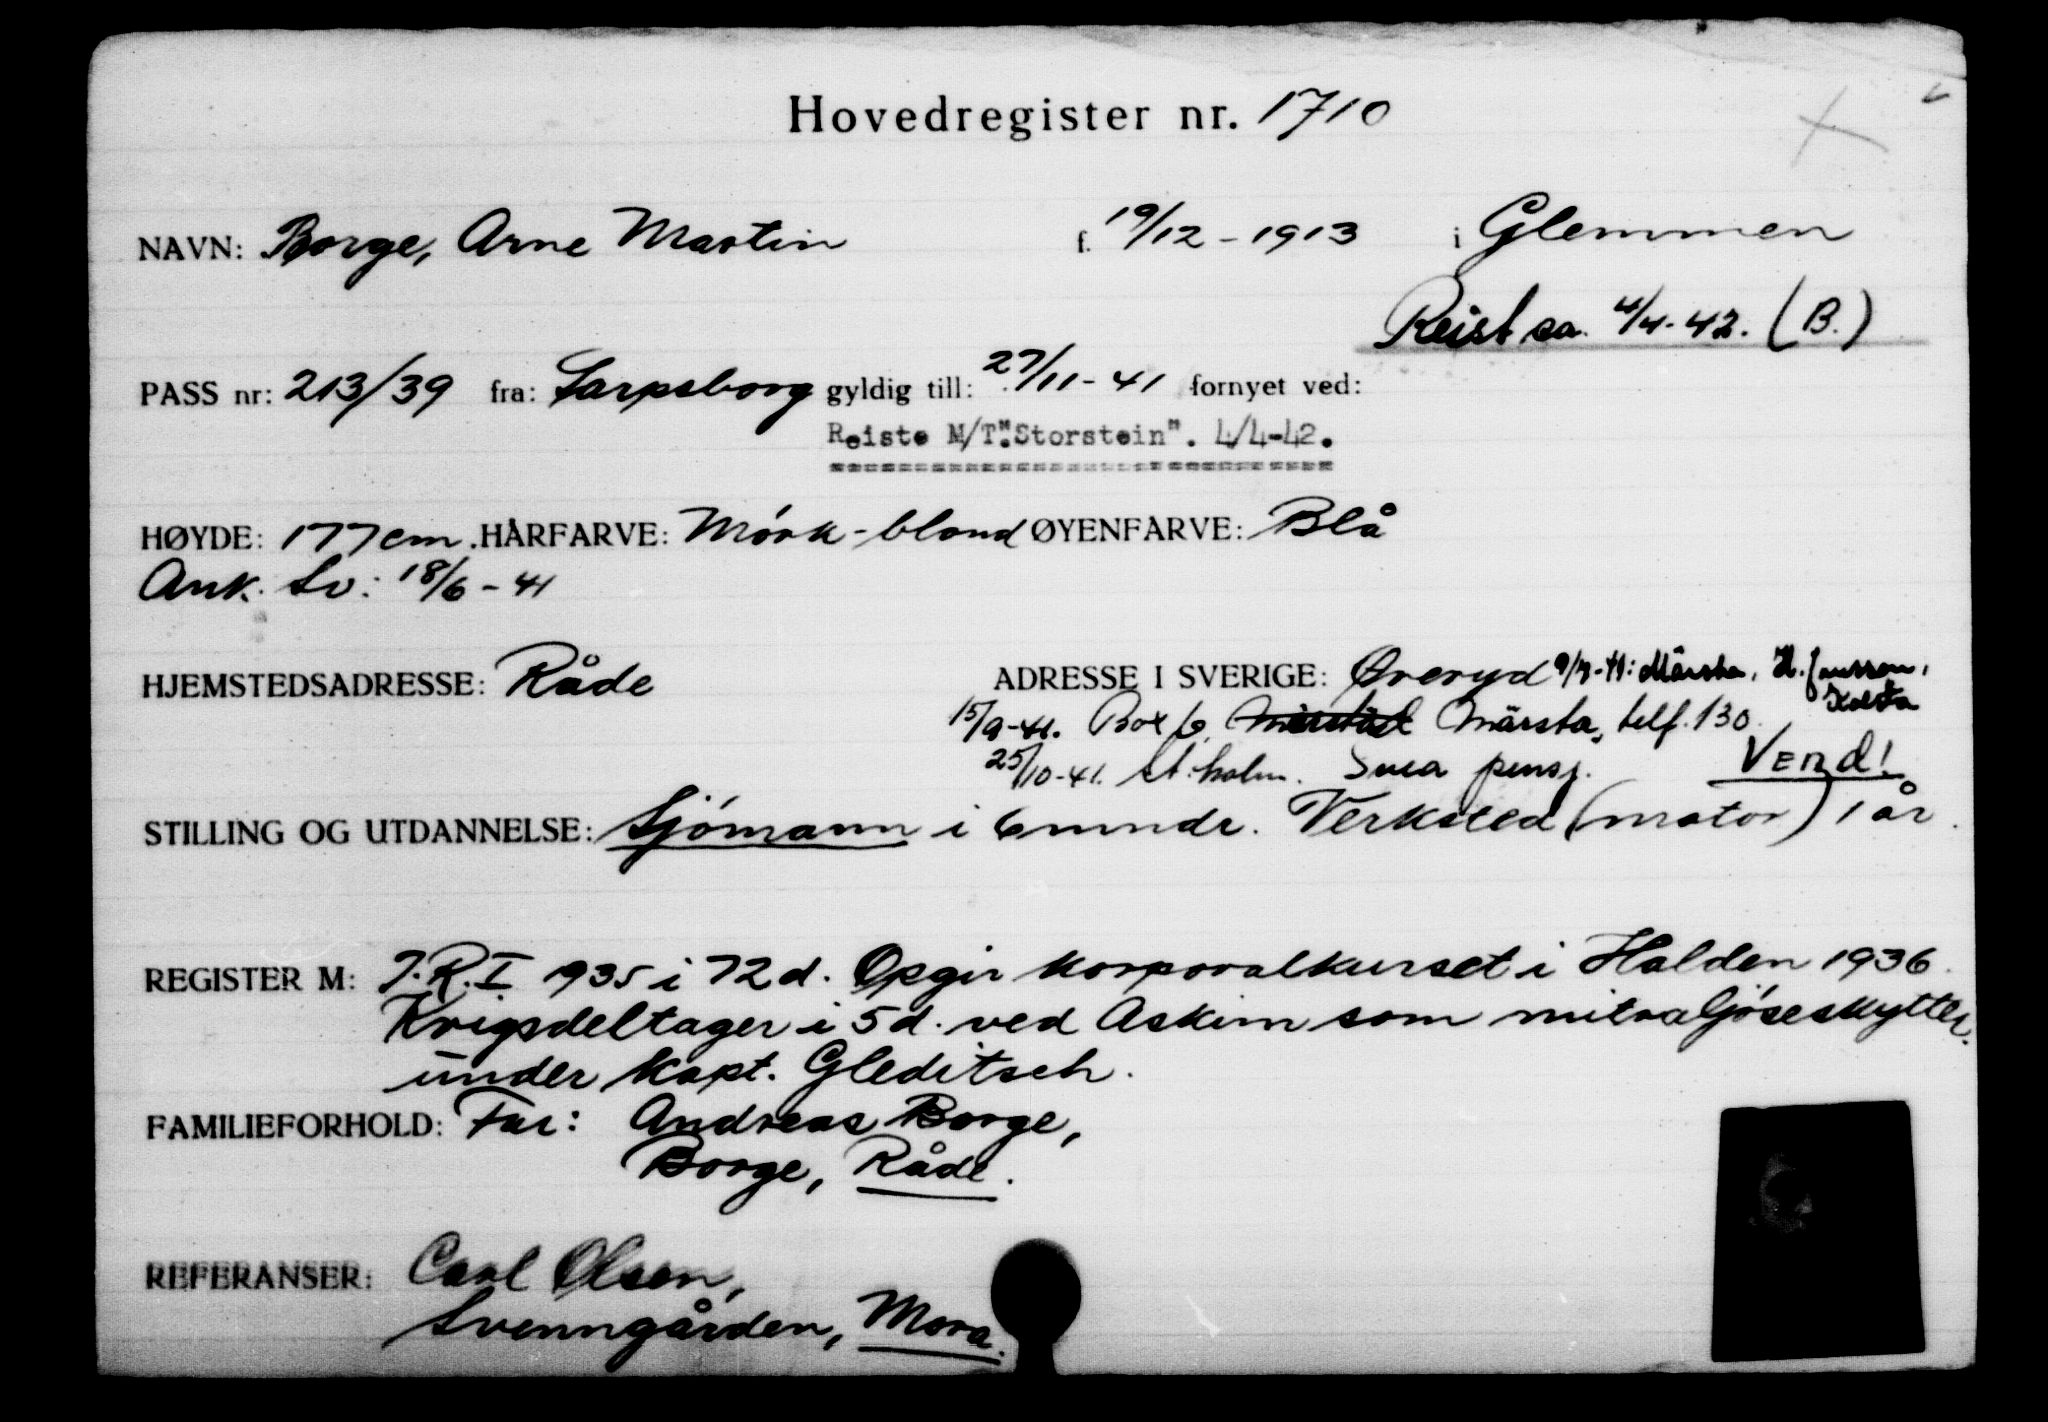 Hovedregister nr. 1710
NAVN: Borge, Arne Martin f. 19/12-1913 i Glemmen
Reist sa. 4/4-42. (B.)
PASS nr: 213/39 fra: Sarpsborg gyldig till: 27/11-41 fornyet ved:
Reiste M/T."Storstein". 4/4-42.
HØYDE: 177cm. HÅRFARVE: Mórk-blond ØYENFARVE: Blå
Ank. Sv: 18/6-41
HJEMSTEDSADRESSE: Råde ADRESSE I SVERIGE: Øreryd 9/9-41: Märsta, H. Jansson,
Kolsta
15/9-41. Box 6, Märsta, telf. 130.
25/10-41. St.holm. Svea pensj. Vend!
STILLING OG UTDANNELSE: Sjómann i 6 mndr. Verksted (motor) 1 år.
REGISTER M: I.R.I 1935 i 72 d. Opgir korporalkurset i Halden 1936.
Krigsdeltager i 5 d. ved Askim som mitraljóseskytter
under kapt. Gleditsch.
FAMILIEFORHOLD: Far: Andreas Borge,
Borge, Råde.
REFERANSER: Carl Olsen,
Svenngården, Mora.